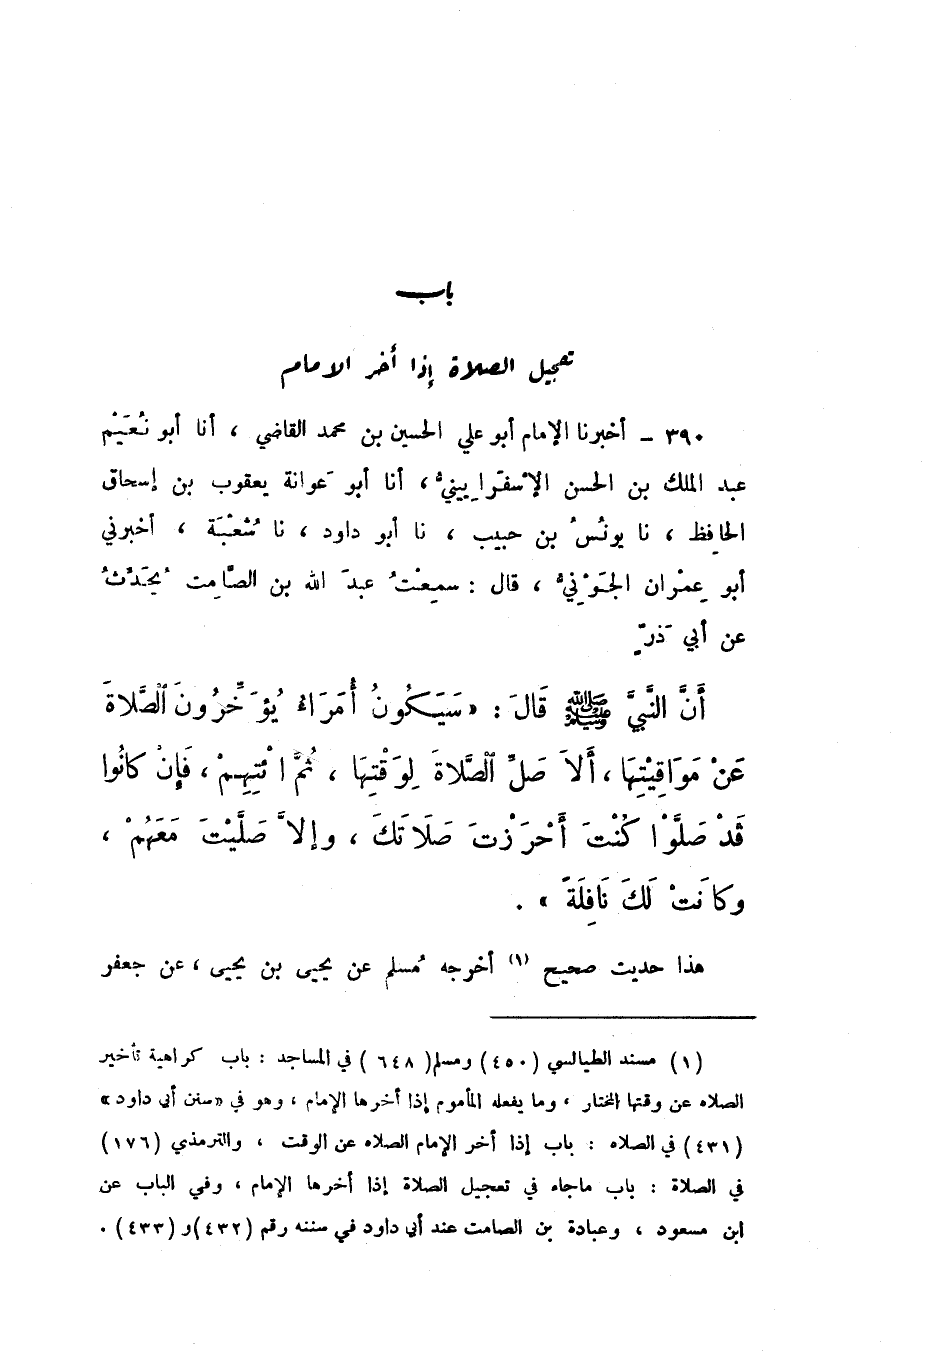 باب
تعجيل الصلاة إذا أخر الامام
٣٩٠ - أخبرنا الإمام أبو علي الحسين بن محمد القاضي ، أنا أبو نُعَيْم
عبد الملك بن الحسن الإسْفَرايِينيُّ ، أنا أبو عَوانة يعقوب بن إسحاق
الحافِظ ، نا يونُسُ بن حبيب ، نا أبو داود ، نا شُعْبَة ، أخبرني
أبو عِمْران الجَوْنِيُّ ، قال : سمِعْتُ عبدَ الله بن الصَّامِت يُحَدِّثُ
عن أبي ذَرٍّ
أَنَّ النَّبِيَّ ﷺ قَالَ : «سَيَكُونُ أُمَرَاءُ يُؤَخِّرُونَ الصَّلاةَ
عَنْ مَوَاقِيْتِهَا ، أَلاَ صَلِّ الصَّلاةَ لِوَقْتِهَا ، ثُمَّ ائْتِهِمْ ، فَإِنْ كانُوا
قَدْ صَلَّوْا كُنْتَ أَحْرَزْتَ صَلَاتَكَ ، وإلاَّ صَلَّيْتَ مَعَهُمْ ،
وكَانَتْ لَكَ نَافِلَةً » .
هذا حديث صحيح (١) أخرجه مُسلم عن يحيى بن يحيى ، عن جعفر
(١) مسند الطيالسي (٤٥٠) ومسلم( ٦٤٨ ) في المساجد : باب كراهية تأخير
الصلاه عن وقتها المختار ، وما يفعله المأموم إذا أخرها الإمام ، وهو في «سنن أبي داود»
(٤٣١) في الصلاه : باب إذا أخر الإمام الصلاه عن الوقت ، والترمذي (١٧٦)
في الصلاة : باب ماجاء في تعجيل الصلاة إذا أخرها الإمام ، وفي الباب عن
ابن مسعود ، وعبادة بن الصامت عند أبي داود في سننه رقم (٤٣٢)و (٤٣٣) .